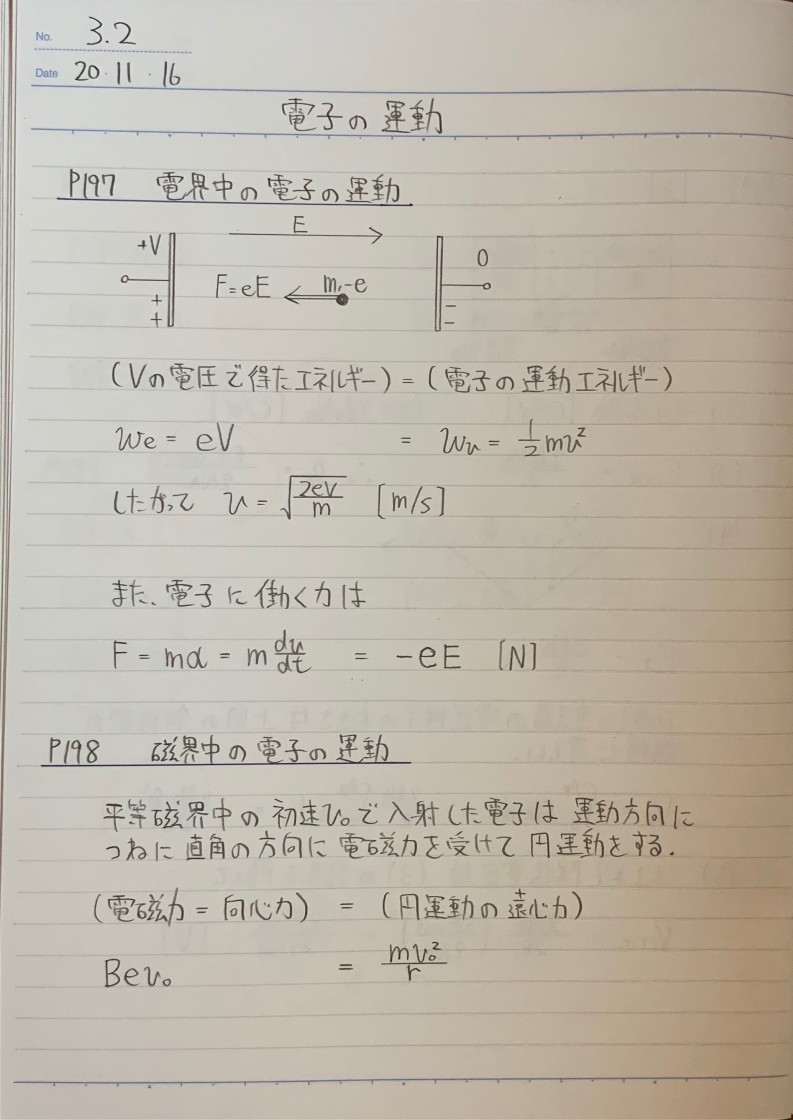 No. 3.2
Date 20・11・16
電子の運動
P197 電界中の電子の運動
E
+V
0
F=eE
m,-e
+
+
-
-
(Vの電圧で得たエネルギー)=(電子の運動エネルギー)
We = eV = Wv = 1/2 mv²
したがって v = √(2eV/m) [m/s]
また、電子に働く力は
F = mα = m dv/dt = -eE [N]
P198 磁界中の電子の運動
平等磁界中の初速v₀で入射した電子は運動方向に
つねに直角の方向に電磁力を受けて円運動をする.
(電磁力=向心力) = (円運動の遠心力)
Bev₀ = mv₀²/r